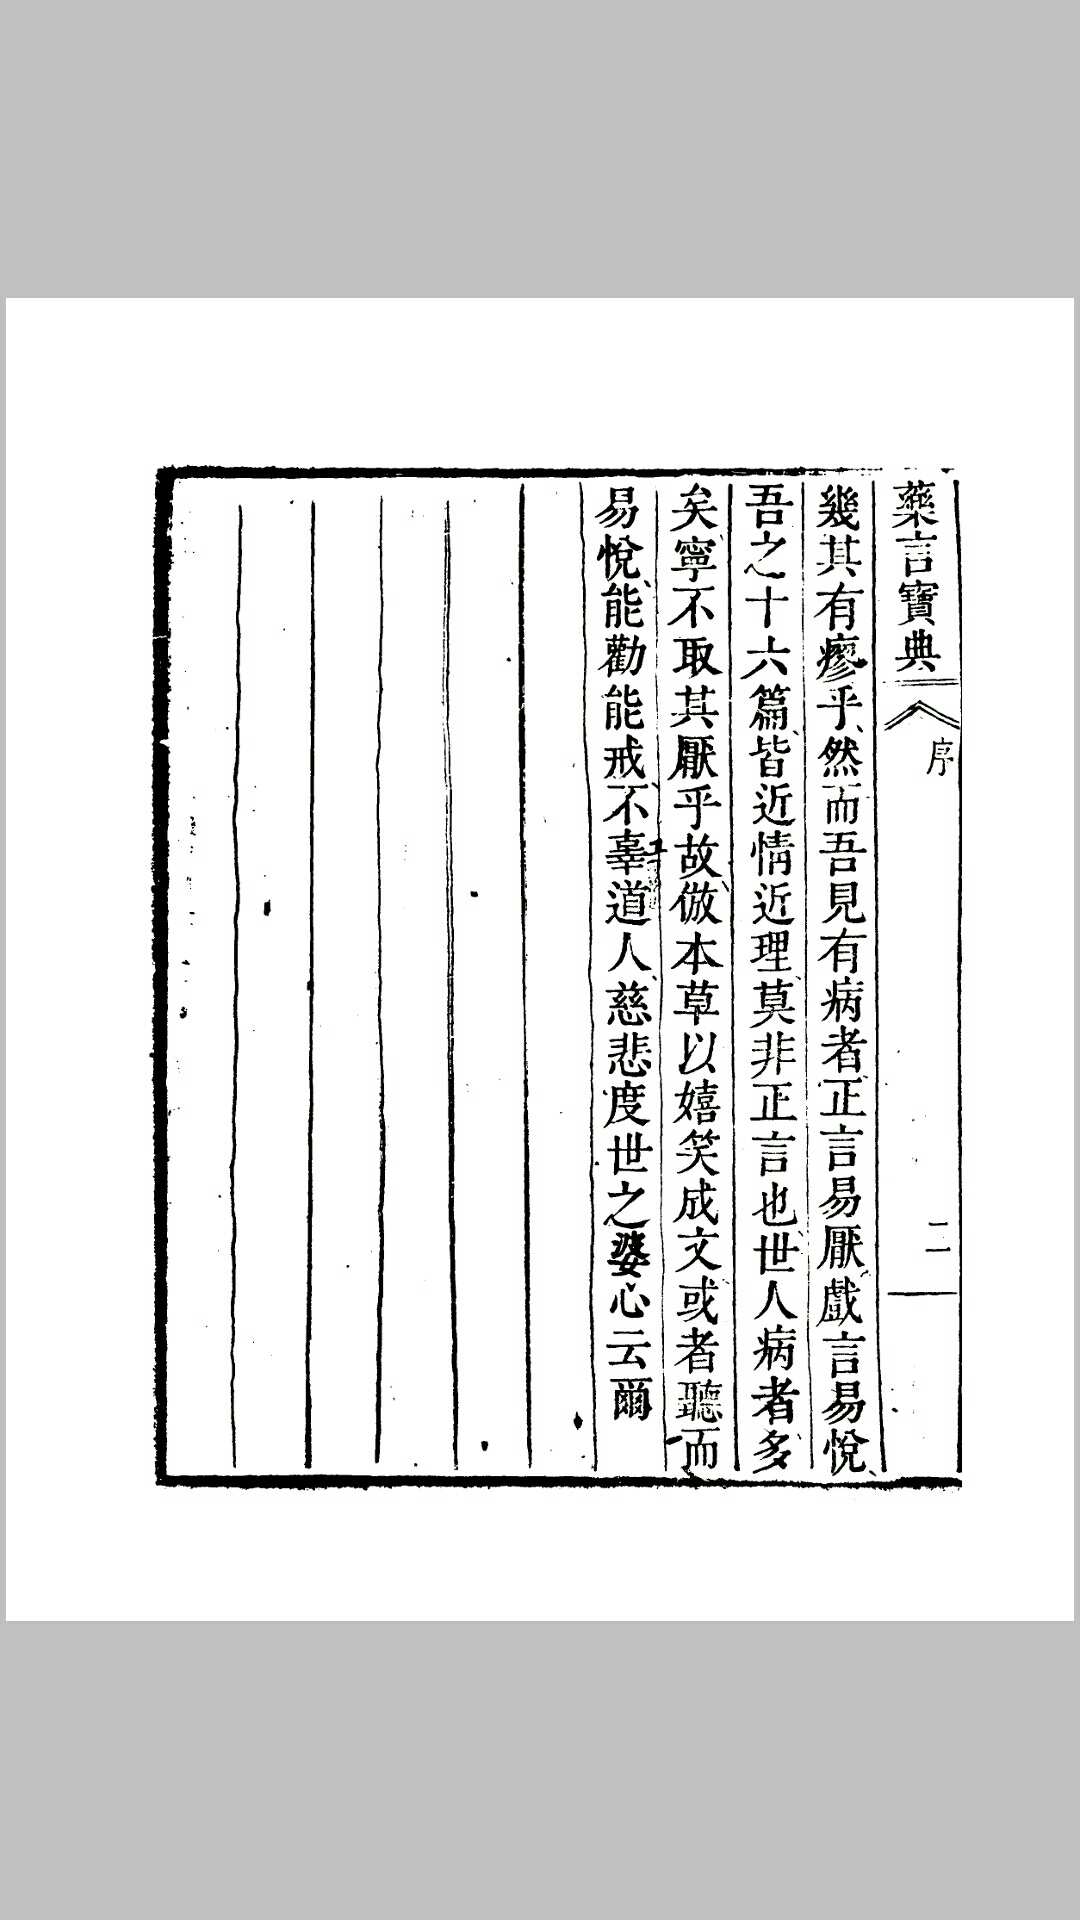 藥言寶典 序 二
幾其有瘳乎然而吾見有病者正言易厭戲言易悅
吾之十六篇皆近情近理莫非正言也世人病者多
矣寧不取其厭乎故倣本草以嬉笑成文或者聽而
易悅能勸能戒不辜道人慈悲度世之婆心云爾